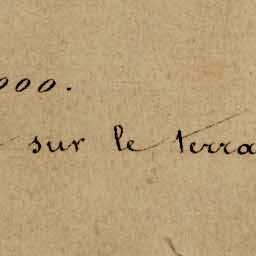 000.
sur le terra